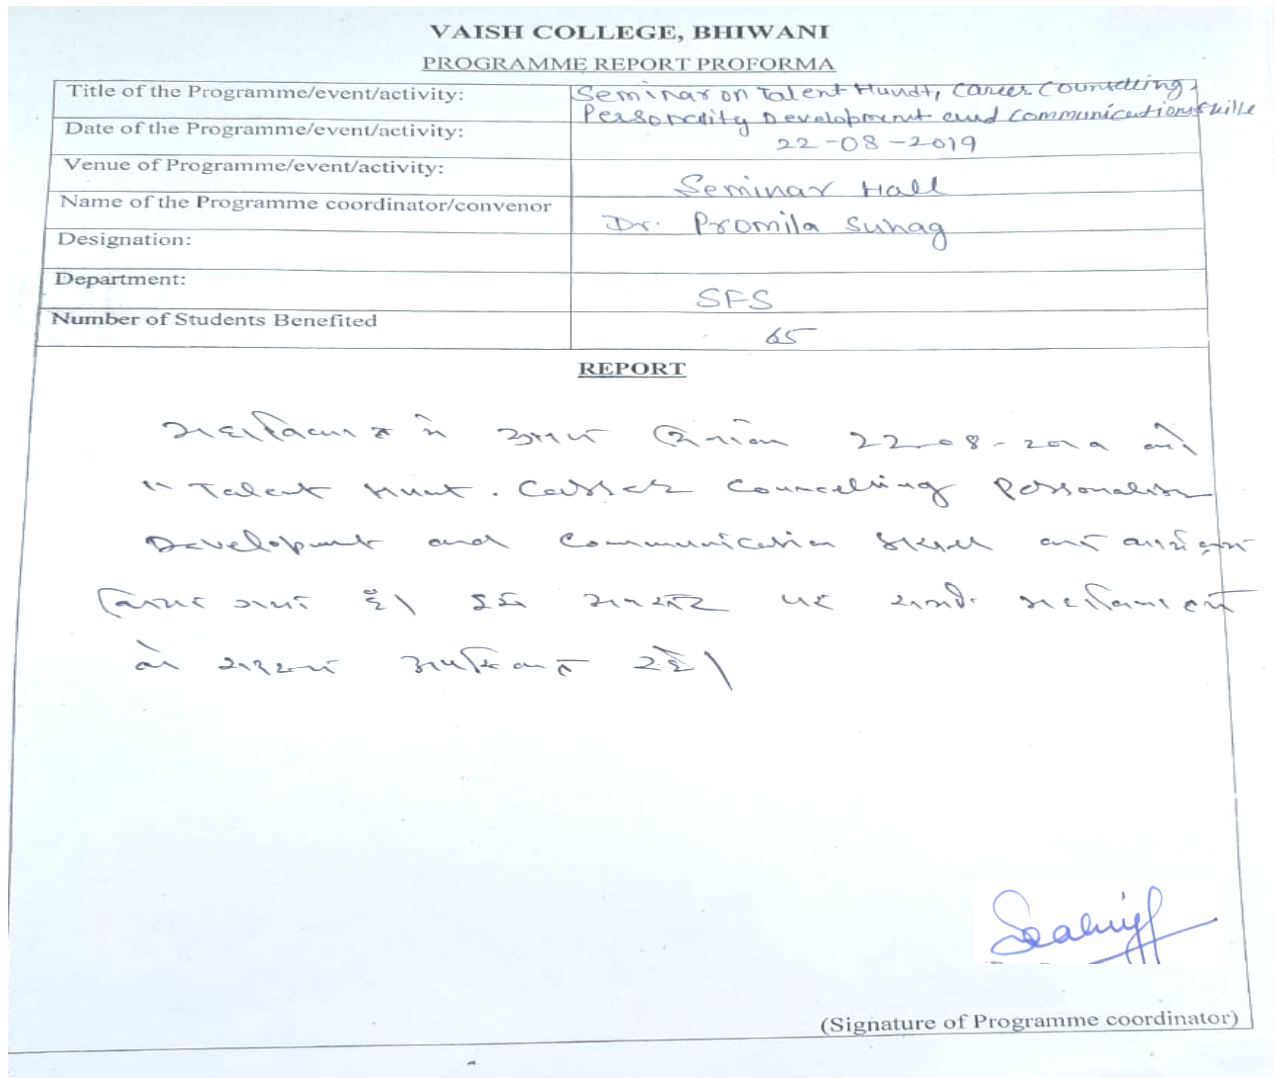 VAISH COLLEGE, BHIWANI
PROGRAMME REPORT PROFORMA
Title of the Programme/event/activity: Seminar on Talent Hundt, Career Councelling,
Personality Development and Communication Skills
Date of the Programme/event/activity: 22-08-2019
Venue of Programme/event/activity: Seminar Hall
Name of the Programme coordinator/convenor Dr. Promila Suhag
Designation:
Department: SFS
Number of Students Benefited 65
REPORT
महाविद्यालय में आज दिनांक 22-08-2019 को
" Talent Hunt. Career Councelling Personality
Development and Communication Skills का कार्यक्रम
किया गया है। इस अवसर पर सभी महाविद्यालय
के सदस्य उपस्थित रहे।
(Signature of Programme coordinator)